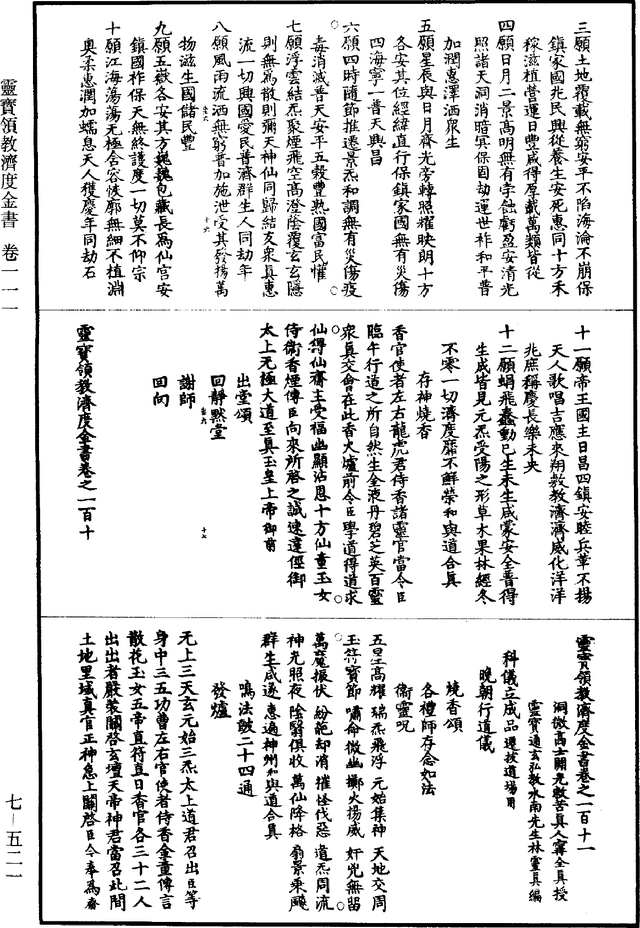 靈寶領教濟度金書 卷一一一
三願土地覆載無窮安平不陷海淪不崩保
鎮家國兆民興從養生安死惠同十方禾
稼滋植營運日豐咸得厚載萬類皆從
四願日月二景高明無有孛蝕虧盈安清光
照諸天洞消暗冥保固劫運世祚和平普
加潤惠澤洒衆生
五願星辰與日月齊光旁轉照耀映朗十方
各安其位經緯直行保鎮家國無有災傷
四海寧一普天興昌
六願四時隨節推遷景炁和調無有災傷疫
毒消滅普天安平五穀豐熟國富民懽
七願浮雲結炁聚煙飛空高澄陰覆玄玄隱
則無爲散則彌天神仙同歸結友衆真惠
流一切興國愛民普濟群生人同劫年
八願風雨流洒無窮普加施泄受其發揚萬
物滋生國儲民豐
九願五嶽各安其方巍巍包藏長爲仙宮安
鎮國祚保天無終護度一切莫不仰宗
十願江海蕩蕩無極含容恢廓無細不植淵
奧柔惠潤加蠕息天人獲慶年同劫石
十一願帝王國主日昌四鎮安睦兵革不揚
天人歌唱吉應來翔敷教濟濟威化洋洋
兆庶稱慶長樂未央
十二願蜎飛蠢動已生未生咸蒙安全普得
生成皆見元炁受陽之形草木果林經冬
不零一切濟度靡不鮮榮和與道合真
存神燒香
香官使者左右龍虎君侍香諸靈官當令臣
臨午行道之所自然生金液丹碧芝英百靈
衆真交會在此香火爐前令臣學道得道求
仙得仙齋主受福幽顯沾恩十方仙童玉女
侍衞香煙傳臣向來所啓之誠速達徑御
太上无極大道至真玉皇上帝御前
出堂頌
回靜默堂
謝師
回向
靈寶領教濟度金書卷之一百十
靈寶領教濟度金書卷之一百十一
洞微高士開光救苦真人甯全真授
靈寶通玄弘教水南先生林靈真編
科儀立成品 遷拔道場用
晚朝行道儀
燒香頌
各禮師存念如法
衞靈呪
五星高耀 瑞炁飛浮 元始集神 天地交周
玉符寶節 嘯命徵幽 擲火揚威 奸兇無留
萬魔振伏 紛葩却消 摧怪伐惡 道炁周流
神光照夜 陰翳俱收 萬仙降格 翦景乘飈
群生咸遂 惠遍神州 和與道合真
鳴法鼓二十四通
發爐
无上三天玄元始三炁太上道君召出臣等
身中三五功曹左右官使者侍香金童傳言
散花玉女五帝直符直日香官各三十二人
出出者嚴裝關啓玄壇天帝神君當召此間
土地里域真官正神急上關啓臣今奉爲齋
七－五二一